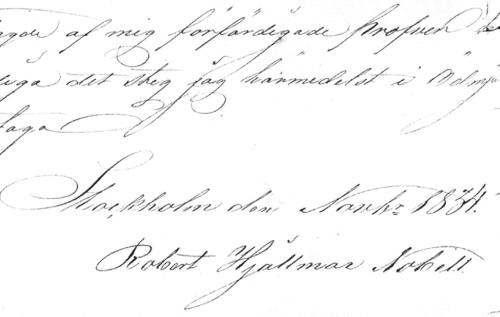 af mig förfärdigade profven
det steg jag härmedelst i Ödmju
taga
Stockholm den Novbr 1834.
Robert Hjallmar Nobell